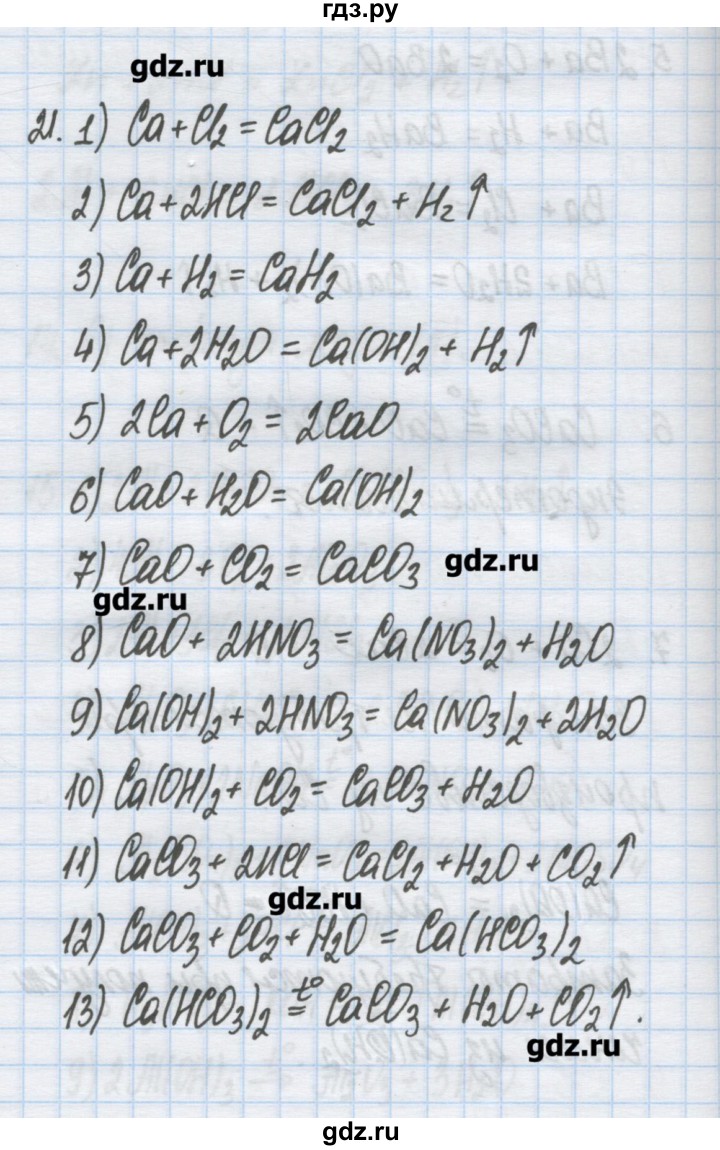 гдз.ру
gdz.ru
21. 1) Ca + Cl₂ = CaCl₂
2) Ca + 2HCl = CaCl₂ + H₂↑
3) Ca + H₂ = CaH₂
4) Ca + 2H₂O = Ca(OH)₂ + H₂↑
5) 2Ca + O₂ = 2CaO
6) CaO + H₂O = Ca(OH)₂
7) CaO + CO₂ = CaCO₃ gdz.ru
gdz.ru
8) CaO + 2HNO₃ = Ca(NO₃)₂ + H₂O
9) Ca(OH)₂ + 2HNO₃ = Ca(NO₃)₂ + 2H₂O
10) Ca(OH)₂ + CO₂ = CaCO₃ + H₂O
11) CaCO₃ + 2HCl = CaCl₂ + H₂O + CO₂↑
gdz.ru
12) CaCO₃ + CO₂ + H₂O = Ca(HCO₃)₂
13) Ca(HCO₃)₂ t° = CaCO₃ + H₂O + CO₂↑.
gdz.ru
gdz.ru